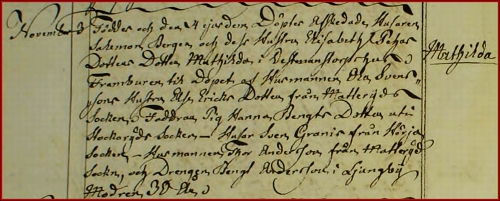 Novemb: 3 Föddes och den 4 ejusdem Döptes Afskedade Husaren
Salomon Bergen och dess Hustru Elisabeth Pehrs
Dotters Dotter Mathilda i
Mathilda
Framburen til Döpet af Husmannen Ola Svens-
sons Hustru Elsa Ericks Dotter från Matteryds
Socken, Faddrar Pig Hanna Bengts Dotter uti
Stockaryds Socken – Husar Sven Granis från Hörja
Socken – Husmannen Thor Andersson från Matteryd
Sockn, och Drengen Bengt Andersson i Ljungby
Modren 30 åhr